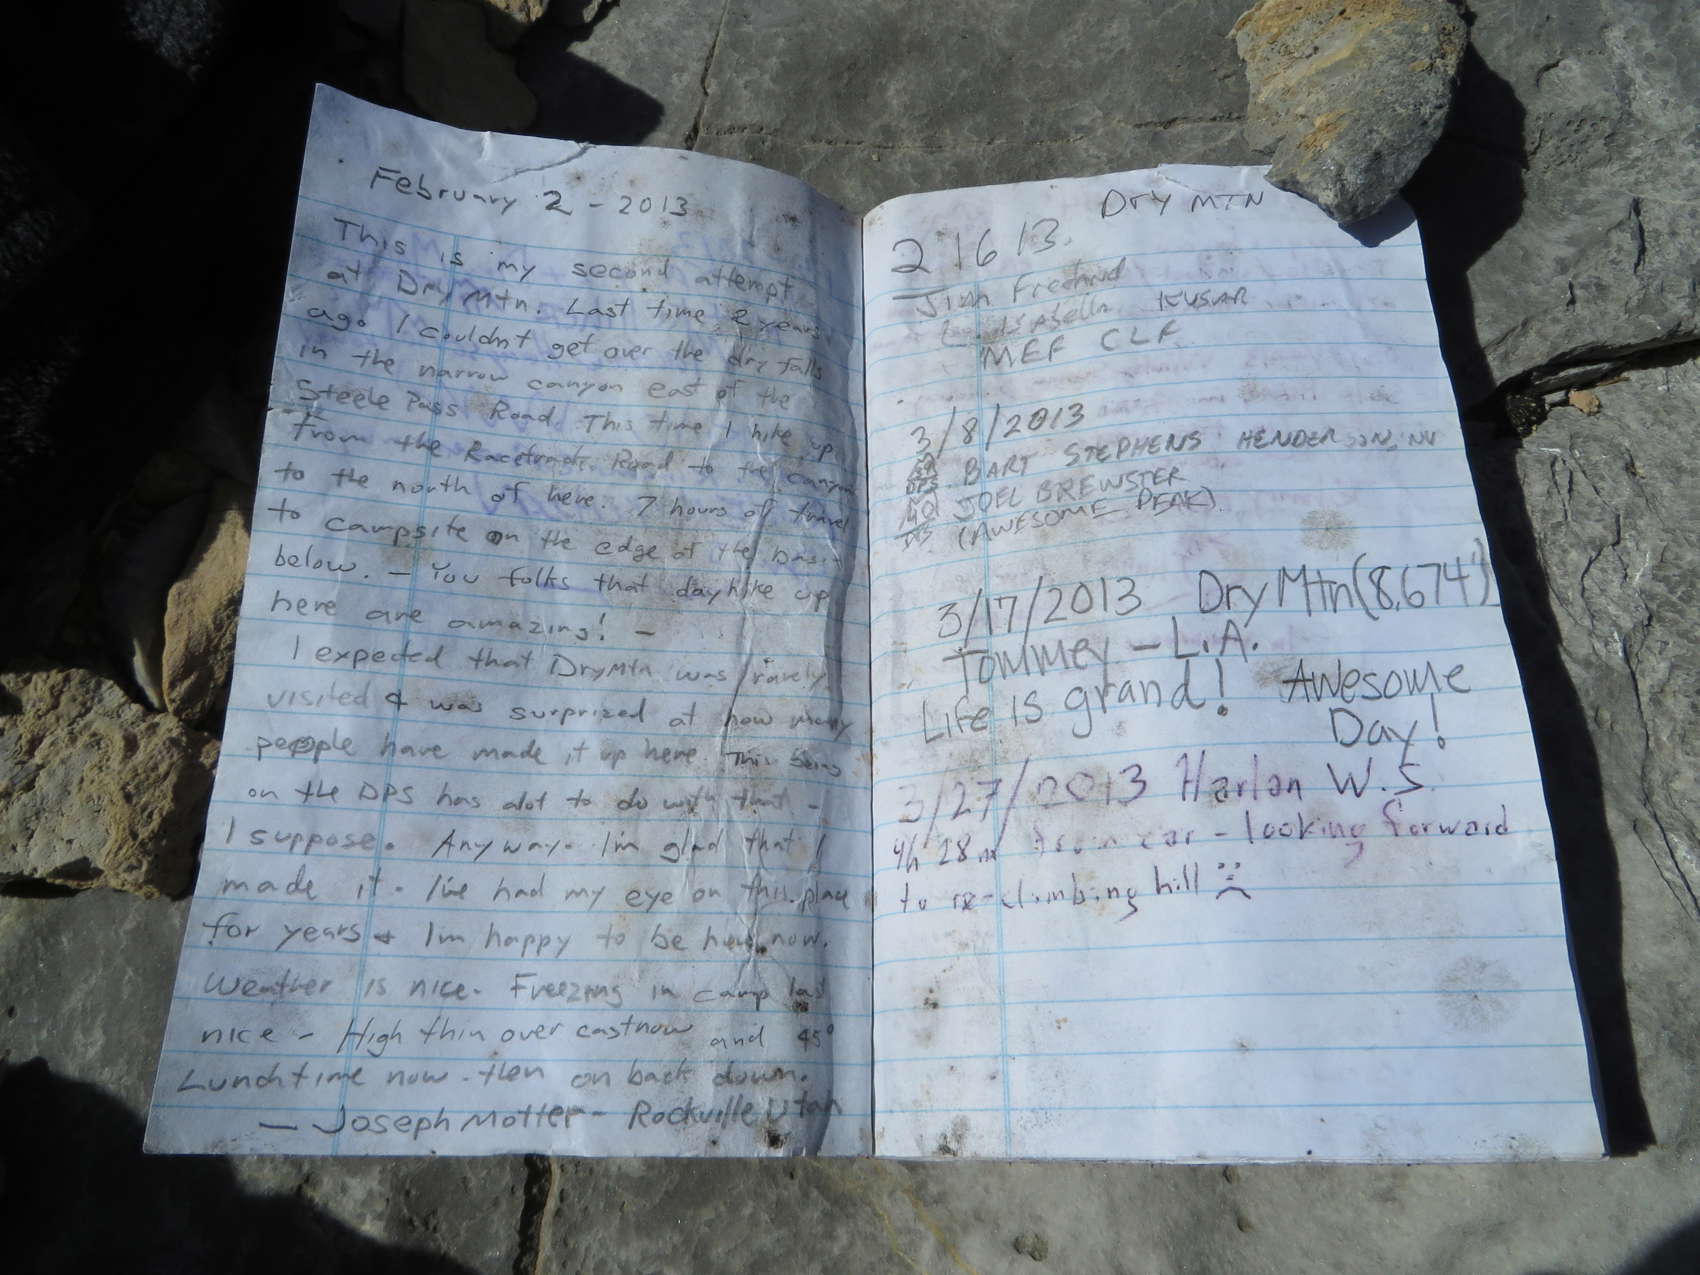 February 2 - 2013
This is my second attempt
at Dry Mtn. Last time 2 years
ago I couldn't get over the dry falls
in the narrow canyon east of the
Steele Pass Road. This time I hike up
from the Racetrack Road to the canyon
to the north of here. 7 hours of travel
to campsite on the edge of the basin
below. - You folks that dayhike up
here are amazing! -
I expected that Dry Mtn. was rarely
visited & was surprized at how many
people have made it up here. This being
on the DPS has alot to do with that -
I suppose. Anyway. I'm glad that I
made it. I've had my eye on this place
for years & I'm happy to be here now.
Weather is nice. Freezing in camp last
nice - High thin over castnow and 45°
Lunchtime now - then on back down.
- Joseph Motter - Rockville Utah
Dry MTN
2 16 13.
Jim
MEF CLF
3/8/2013
BART STEPHENS HENDERSON, NV
JOEL BREWSTER
(AWESOME PEAK).
3/17/2013 Dry Mtn (8,674')
Tommey - L.A.
Life is grand! Awesome
Day!
3/27/2013 Harlan W. S.
4h 28m from car - looking forward
to re-climbing hill